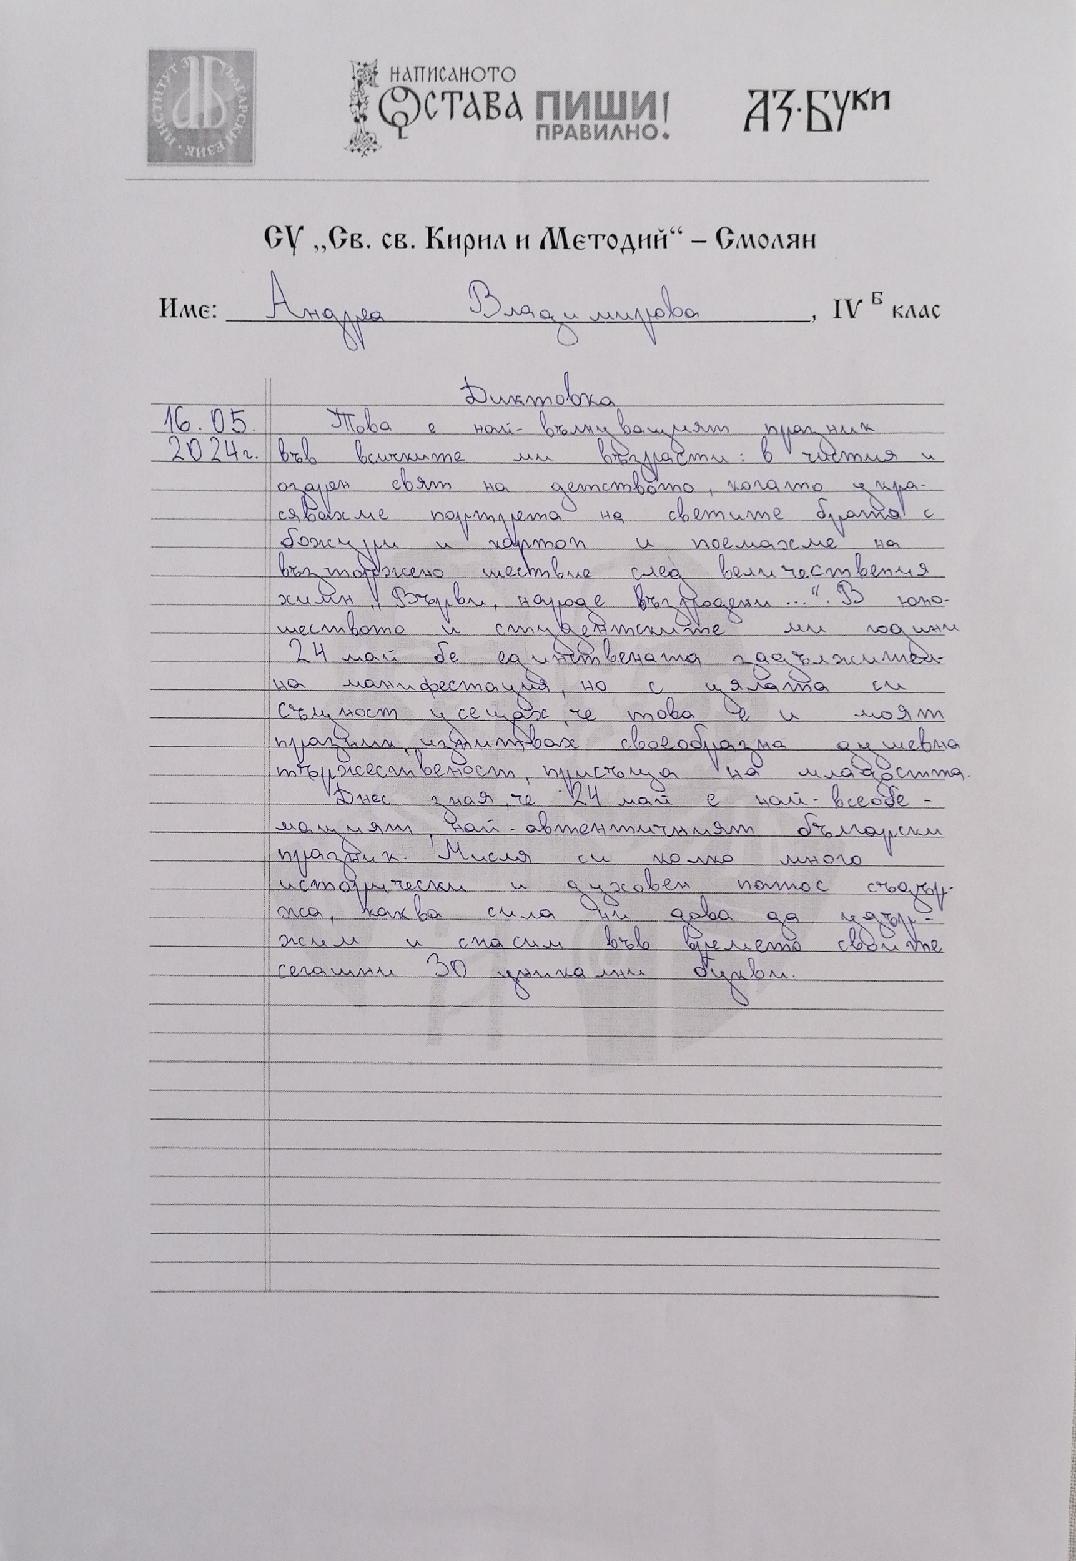 ИНСТИТУТ ЗА БЪЛГАРСКИ ЕЗИК
НАПИСАНОТО
ОСТАВА ПИШИ
ПРАВИЛНО!
АЗ·БУКИ
СУ „Св. св. Кирил и Методий“ – Смолян
Име: Андреа Владимирова, IV Б клас
Диктовка
16.05. Това е най-вълнуващият празник
2024г. във всичките ми възрасти: в чистия и
озарен свят на детството, когато укра-
сявахме портрета на светите братя с
божури и картон и поемахме на
възторжено шествие след величествения
химн „Върви, народе възродени...“. В юно-
шеството и студентските ми години
24 май бе единствената задължител-
на манифестация, но с цялата си
същност усещах, че това е и моят
празник, изпитвах своеобразна душевна
тържественост, присъща на младостта.
Днес зная, че 24 май е най-всеобе-
мащият, най-автентичният български
празник. Мисля си колко много
исторически и духовен патос съдър-
жа, каква сила ни дава да удър-
жим и спасим във времето своите
сегашни 30 уникални букви.